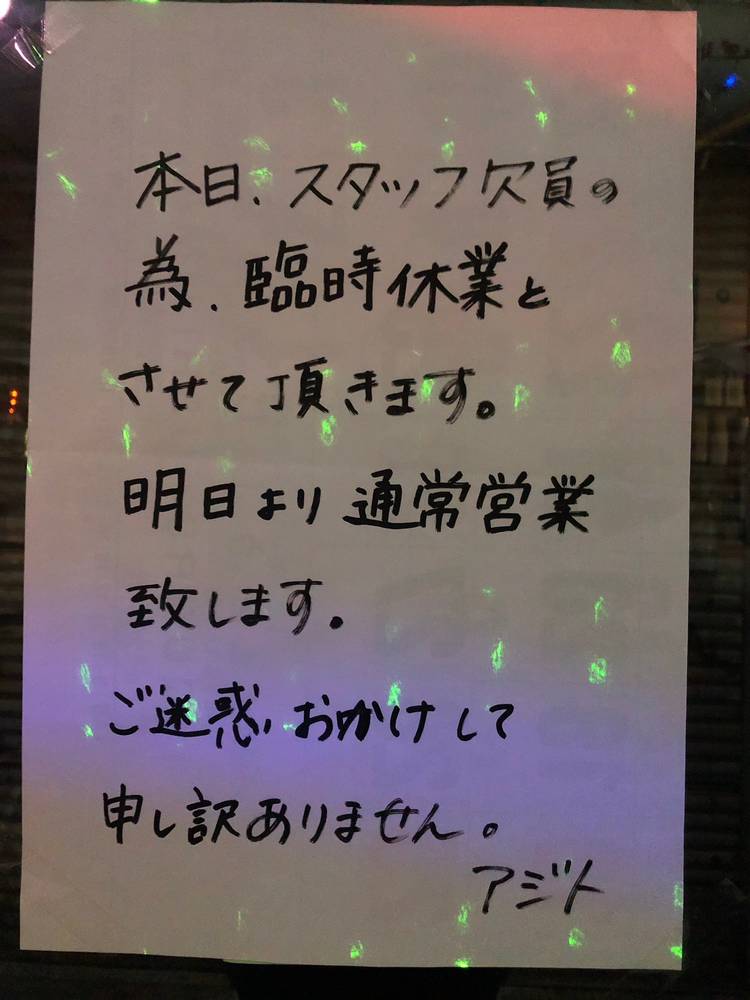 本日、スタッフ欠員の
為、臨時休業と
させて頂きます。
明日より通常営業
致します。
ご迷惑おかけして
申し訳ありません。
アジト